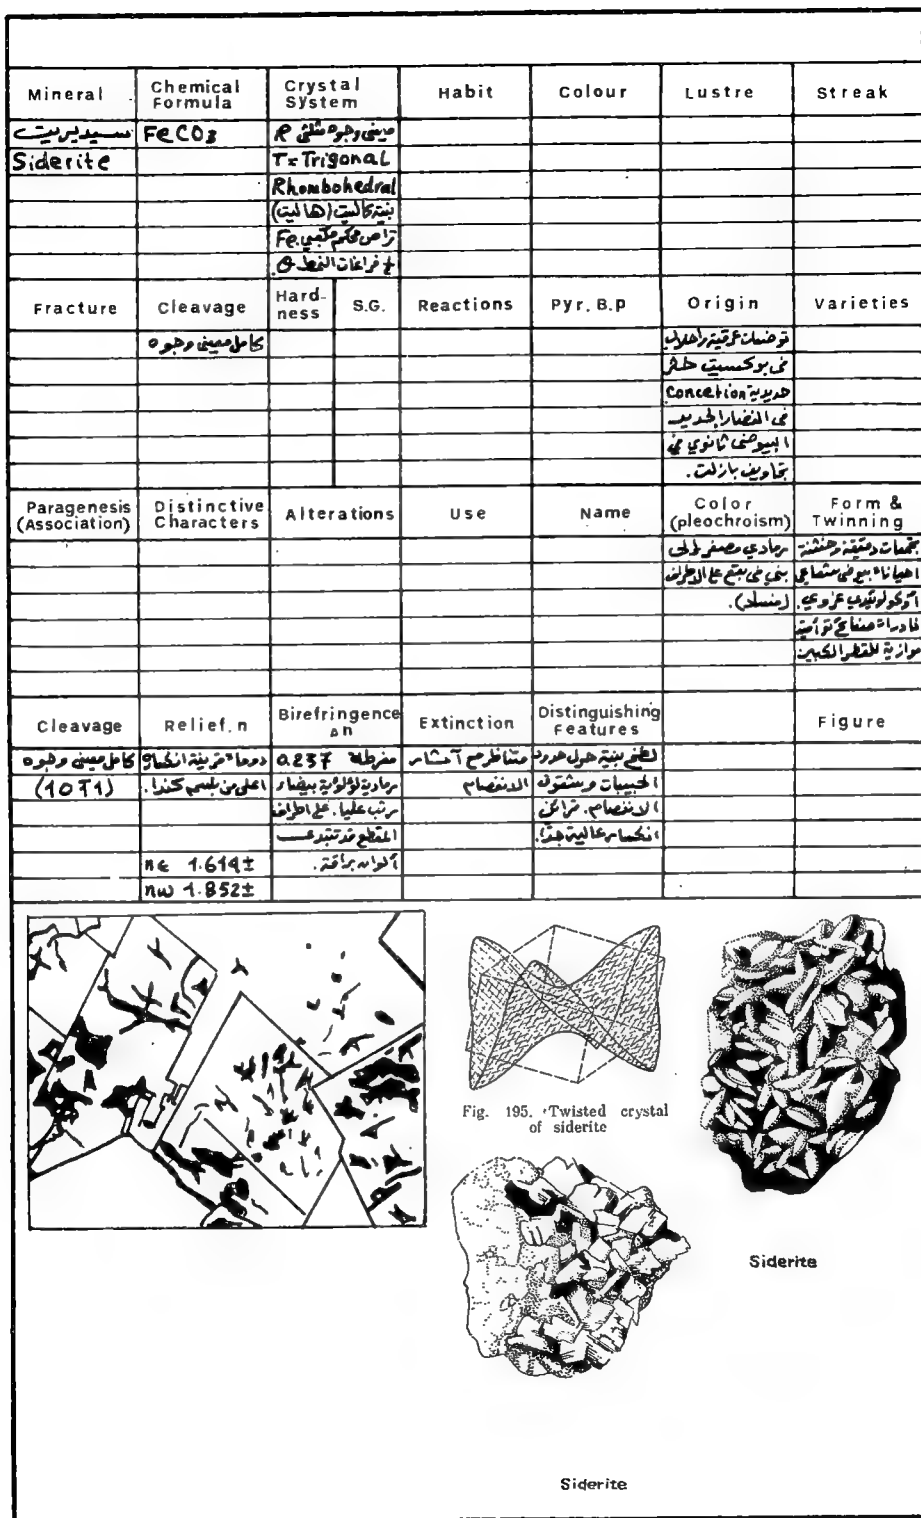 Mineral Chemical Formula Crystal System Habit Colour Lustre Streak
سيديريت FeCO3 معيني وجوه مثلثي R
Siderite T=Trigonal
Rhombohedral
بنية كالسيت (هاليت)
تراص محكم مكعبي Fe
Fracture Cleavage Hardness S.G. Reactions Pyr. B.p Origin Varieties
كامل معيني وجوه توضعات عرقية
في بوكسيت
حديدية Concetion
في
ثانوي في
تجاويف بازلت.
Paragenesis (Association) Distinctive Characters Alterations Use Name Color (pleochroism) Form & Twinning
رمادي مصفر إلى تجمعات دقيقة وخشنة
بني في بقع على الاطراف احيانا
موازية للقطر الكبير
Cleavage Relief. n Birefringence Δn Extinction Distinguishing Features Figure
كامل معيني وجوه دوما قرينة انكسار مفرطة 0.237 متناظر مع آثار لطخ بنية حول حدود
(10T1) اعلى من بلسم كندا. رمادية لؤلؤية بيضاء الانفصام الحبيبات وشقوق
رتب عليا. على اطراف الانفصام. قرائن
المقطع قد تبدو انكسار عالية جدا.
nε 1.614± ألوان براقة.
nω 1.852±
Fig. 195. Twisted crystal
of siderite
Siderite
Siderite